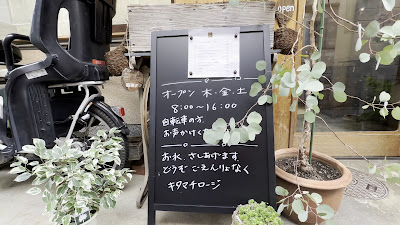 Open
オープン 木・金・土
8:00〜16:00
自転車の方、
お声かけく
お水、さしあげます
どうぞ ごえんりょなく
キタマチロージ